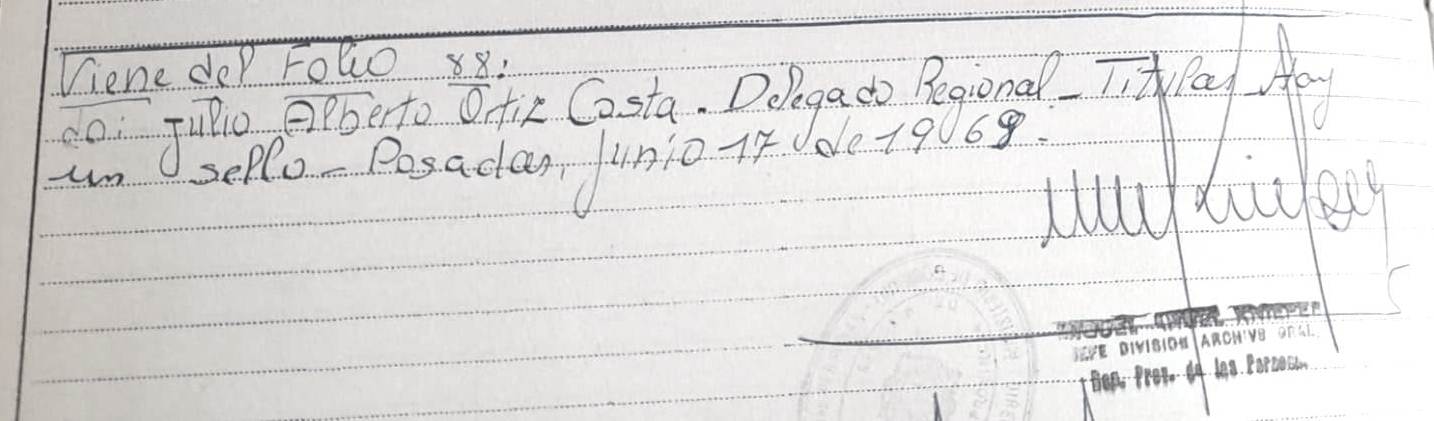 Viene del Folio 88:
do: Julio Alberto Ortiz Costa. Delegado Regional - Titular Hay
un sello - Posadas, Junio 17 de 1969.
JEFE DIVISION ARCHIVO GRAL.
Rep. Prov. de las Personas